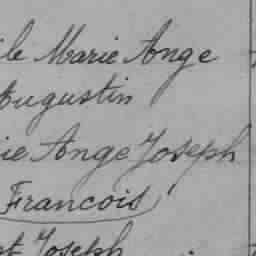 le Marie Ange
Augustin
ie Ange Joseph
Francois
t Joseph